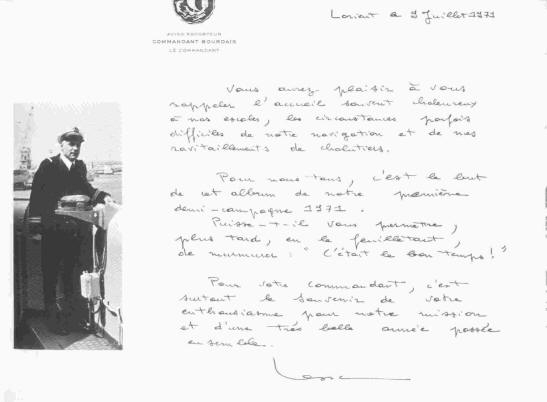 Lorient le 9 Juillet 1971
AVISO ESCORTEUR
COMMANDANT BOURDAIS
LE COMMANDANT
Vous aurez plaisir à vous
rappeler l'accueil souvent chaleureux
à nos escales, les circonstances parfois
difficiles de notre navigation et de nos
ravitaillements de chalutiers.
Pour nous tous, c'est le but
de cet album de notre première
demi-campagne 1971.
Puisse-t-il vous permettre,
plus tard, en le feuilletant,
de murmurer : "C'était le bon temps!"
Pour votre Commandant, c'est
surtout le souvenir de votre
enthousiasme pour notre mission
et d'une très belle année passée
ensemble.